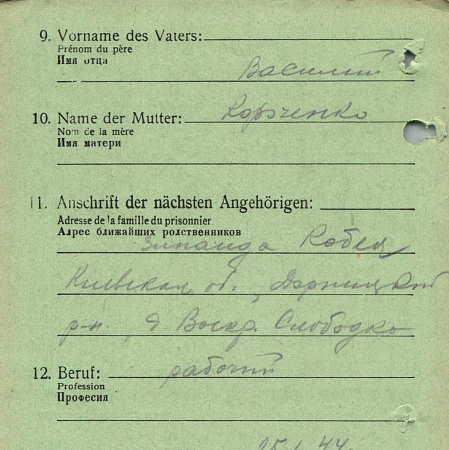 9. Vorname des Vaters:
Prénom du père
Имя отца
Василий
10. Name der Mutter: Корченко
Nom de la mère
Имя матери
11. Anschrift der nächsten Angehörigen:
Adresse de la famille du prisonnier
Адрес ближайших родственников
Зинаида
Киевская об., Дарницкий
р-н, д Воскр. Слободка
12. Beruf: рабочий
Profession
Професия